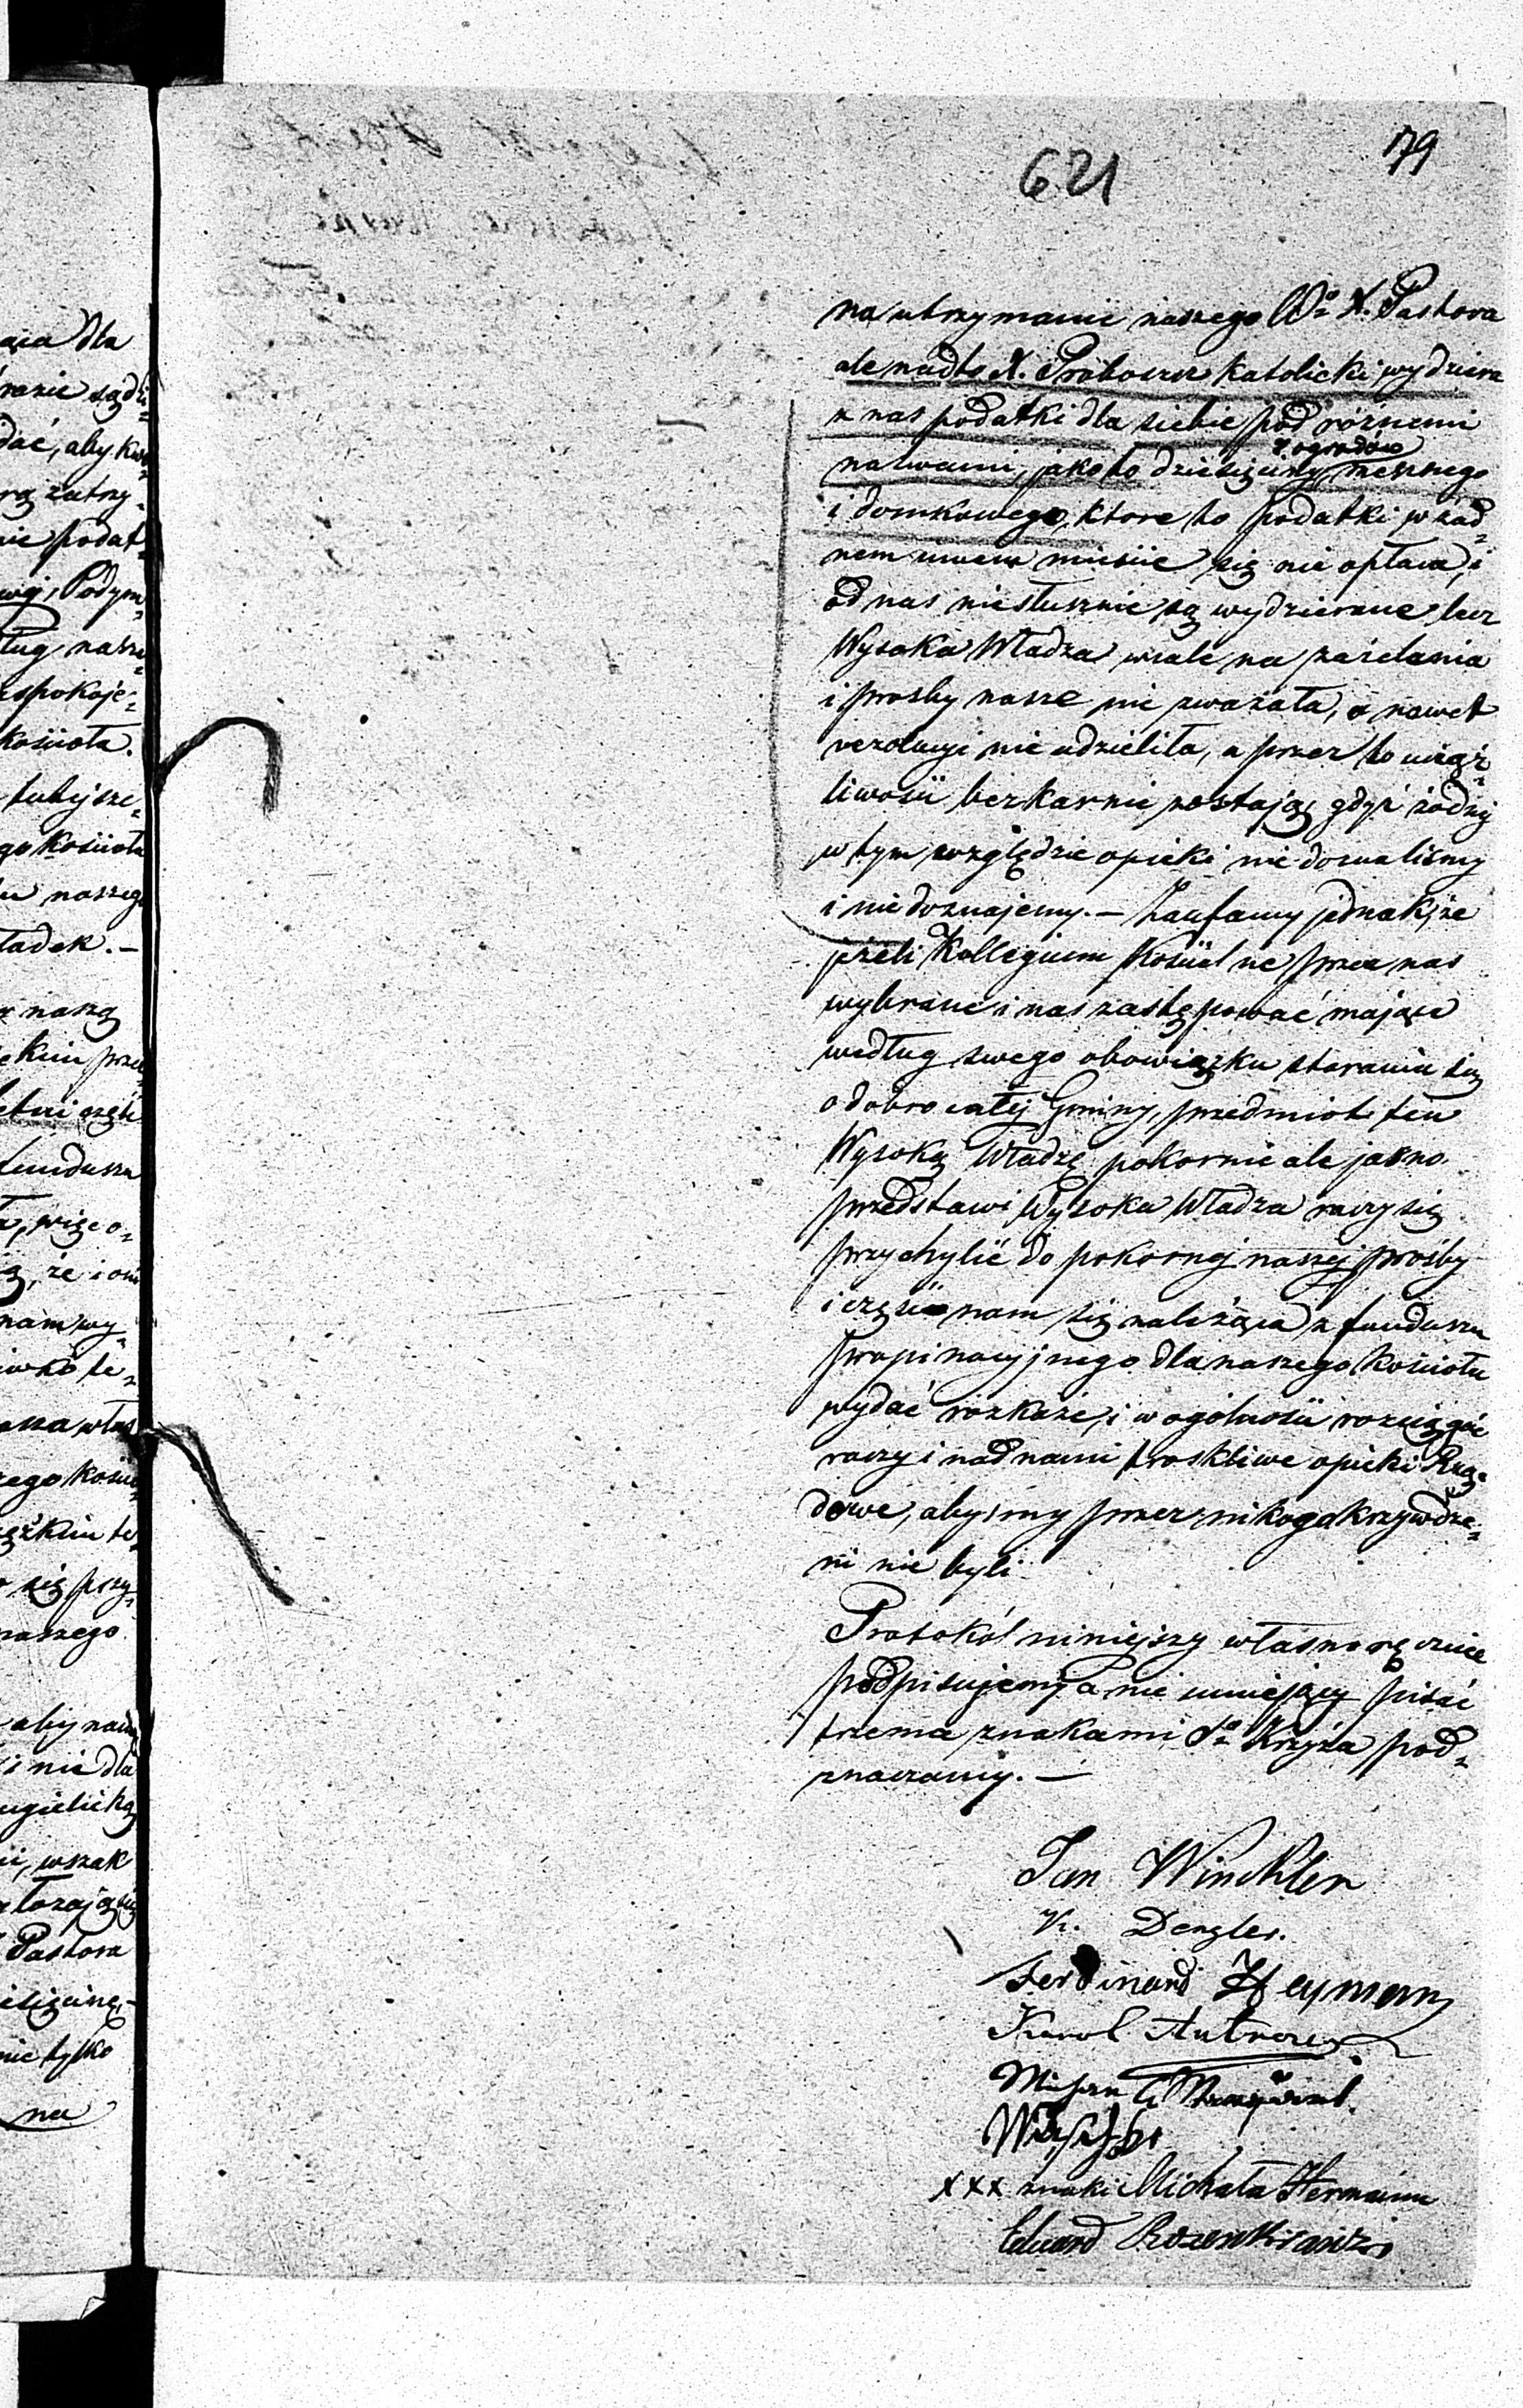 79
621
na utrzymanie naszego Wo X. Pastora
ale nadto X. Proboszcz Katolicki wydziera
z nas podatki dla siebie pod różnemi
z ogrodów
nazwami, jako to dziesięciny, mesznego
i domkowego, które to podatki w żad=
nem innem mieście się nie opłaca, i
od nas niesłusznie są wydzierane, lecz
Wysoka Władza wcale na zażelania
i prośby nasze nie zważała, a nawet
rezolucyi nie udzieliła, a przez to uciąż=
liwości bezkarnie zostają, gdyż żadnej
w tym względzie opieki nie doznaliśmy
i nie doznajemy. — Zaufamy jednak, że
jeżeli Kollegium Kościelne przez nas
wybrane i nas zastępować mające
według swego obowiązku starania się
o dobro całej Gminy, przedmiot ten
Wysoką Władzę pokornie ale jasno
przedstawi Wysoka Władza raczy się
przychylić do pokornej naszej prośby
i część nam się należąca z funduszu
propinacyjnego dla naszego Kościoła
wydać rozkaże, i w ogólności rozciągać
raczy i nad nami troskliwe opieki Rzą=
dowe, abyśmy przez nikogo krzywdze=
ni nie byli
Protokół niniejszy własnoręcznie
podpisujemy a nie umiejący pisać
trzema znakami So Krzyża pod=
znaczamy. —
Jan Winckler
K. Dengler.
Ferdinand Heymann
Karol
XXX znaki Michała Hermann
Eduard
aia dla
razie sądzi=
dać, aby kwo=
rą zatrzy=
nie podat=
Podym=
ług nasze=
spokoje=
kościoła.
tutejsze=
go kościoła
naszego
ładek. —
naszą
kim prze=
funduszu
więc o=
że i oni
nam wy=
ssa włas=
zego kościo=
się przy=
naszego
aby nam
i nie dla
ngielicką
wszak
Pastora
nie tylko
na